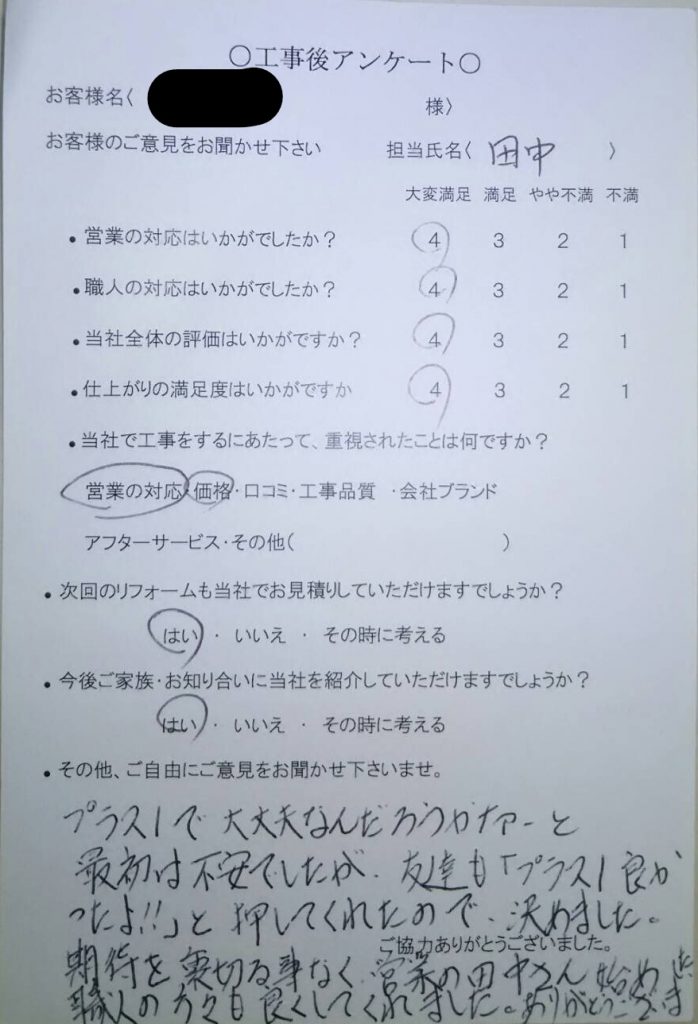 ○工事後アンケート○
お客様名〈 様〉
お客様のご意見をお聞かせ下さい 担当氏名〈 田中 〉
大変満足 満足 やや不満 不満
・営業の対応はいかがでしたか？ 4 3 2 1
・職人の対応はいかがでしたか？ 4 3 2 1
・当社全体の評価はいかがですか？ 4 3 2 1
・仕上がりの満足度はいかがですか 4 3 2 1
・当社で工事をするにあたって、重視されたことは何ですか？
営業の対応・価格・口コミ・工事品質 ・会社ブランド
アフターサービス・その他( )
・次回のリフォームも当社でお見積りしていただけますでしょうか？
はい ・ いいえ ・ その時に考える
・今後ご家族・お知り合いに当社を紹介していただけますでしょうか？
はい ・ いいえ ・ その時に考える
・その他、ご自由にご意見をお聞かせ下さいませ。
プラス1で大丈夫なんだろうかなァーと
最初は不安でしたが、友達も「プラス1良か
ったよ!!」と押してくれたので、決めました。
ご協力ありがとうございました。
期待を裏切る事なく、営業の田中さん始め
職人の方々も良くしてくれました。ありがとうございました